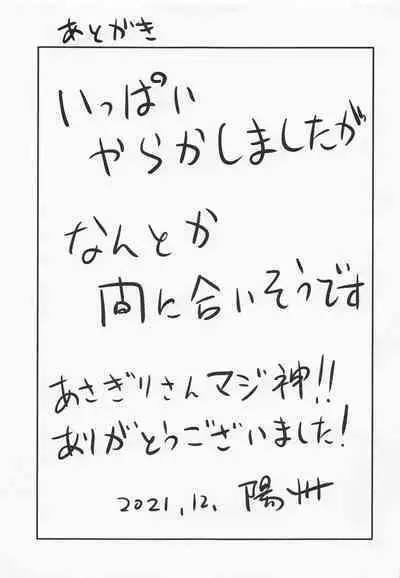 あとがき
いっぱい
やらかしましたが
なんとか
間に合いそうです
あさぎりさんマジ神!!
ありがとうございました!
2021,12, 陽州